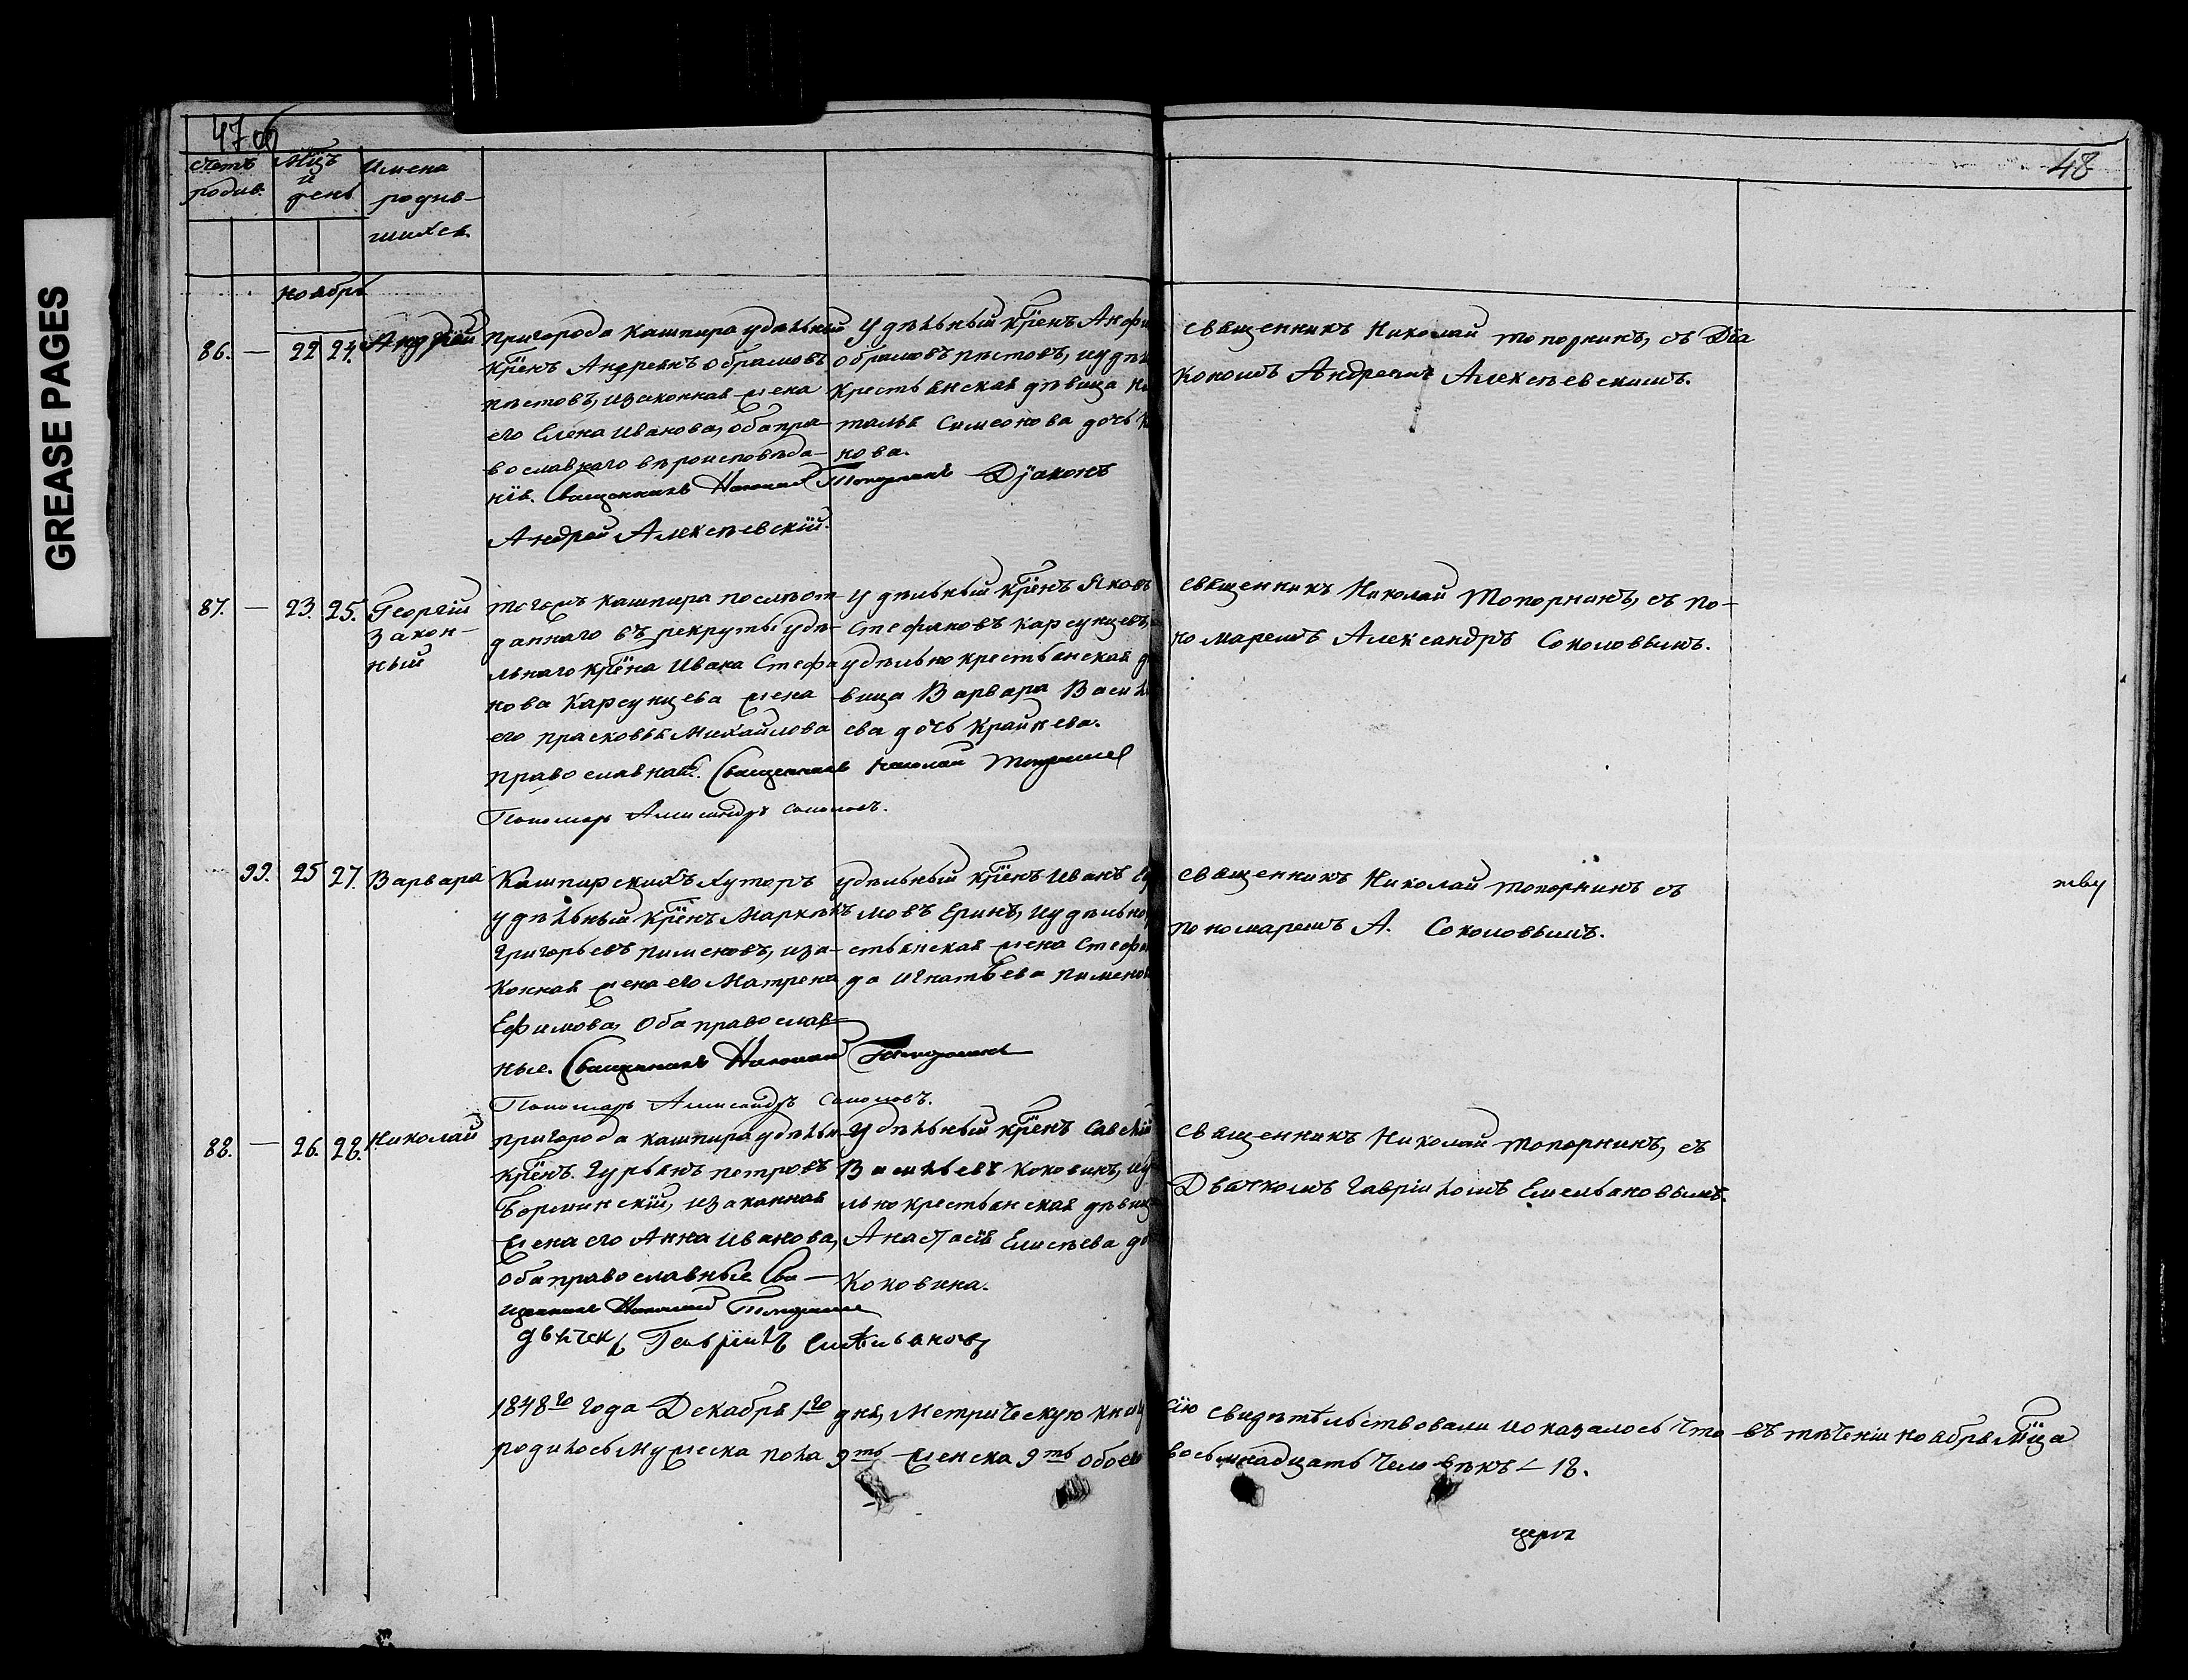 GREASE PAGES
47 об
48
Счетъ родив.
Мцъ и день
Имена родив-
шихся.
Ноябрь
86. — 22 24. Андрей
Пригорода Кашпира удѣльный
крёнъ Андреянъ Обрамовъ
Пѣстовъ, и законная жена
его Елена Иванова, оба пра-
вославнаго вѣроисповѣда-
нія. Священникъ Николай Топорнинъ Діаконъ
Андрей Алексѣевскій.
Удѣльный крёнъ
Обрамовъ Пѣстовъ, и
крестьянская дѣвица
талья Симеонова дочь
нова.
Священникъ Николай Топорнинъ, съ Діа
кономъ Андреемъ Алексѣевскимъ.
87. — 23. 25. Георгій
закон-
ный
Тогожъ Кашпира послѣ от-
даннаго въ рекруты удѣ-
льнаго крёна Ивана Стефа
нова Карсунцева жена
его Прасковья Михайлова
православная. Священникъ Николай Топорнинъ
Пономарь Александръ Соколовъ.
Удѣльный крёнъ Яковъ
Стефановъ Карсунцевъ,
удѣльнокрестьянская
вица Варвара
ева дочь Крайнева.
Священникъ Николай Топорнинъ, съ по-
номаремъ Александръ Соколовымъ.
99. 25 27. Варвара
Кашпирскихъ Хуторъ
удѣльный крёнъ
Григорьевъ Пименовъ, и за-
конная жена его Матрена
Ефимова, оба православ-
ные. Священникъ Николай Топорнинъ
Пономарь Александръ Соколовъ.
удѣльный крёнъ Иванъ
мовъ Еринъ, и удѣльно
стьянская жена
да Игнатьева
Священникъ Николай Топорнинъ съ
пономаремъ А. Соколовымъ.
тву
88. — 26. 28. Николай
Пригорода Кашпира удѣльн
крёнъ Гурьянъ Петровъ
Борминскій, и законная
жена его Анна Иванова,
оба православные. Свя-
щенникъ Николай Топорнинъ
дьячекъ Гавріилъ Емельяновъ
Удѣльный крёнъ Савелій
Васильевъ Коковинъ, и
льнокрестьянская дѣвиц
Анастасія Елисѣева до
Коковина.
Священникъ Николай Топорнинъ, съ
Дьячкомъ Гавріиломъ Емельяновымъ.
1848го года Декабря 1го дня, Метрическую книгу сію свидѣтельствовали и оказалось что въ теченіи ноября мца
родилось мужеска пола 9ть женска 9ть обоего восьмнадцать человѣкъ — 18.
церк